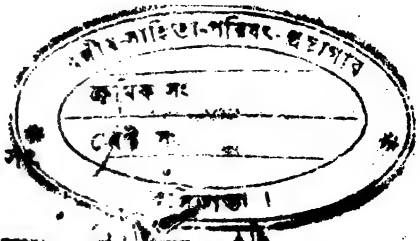 বঙ্গীয়-সাহিত্য-পরিষৎ-গ্রন্থাগার
ক্রমিক সং
সং
কলিকাতা ।